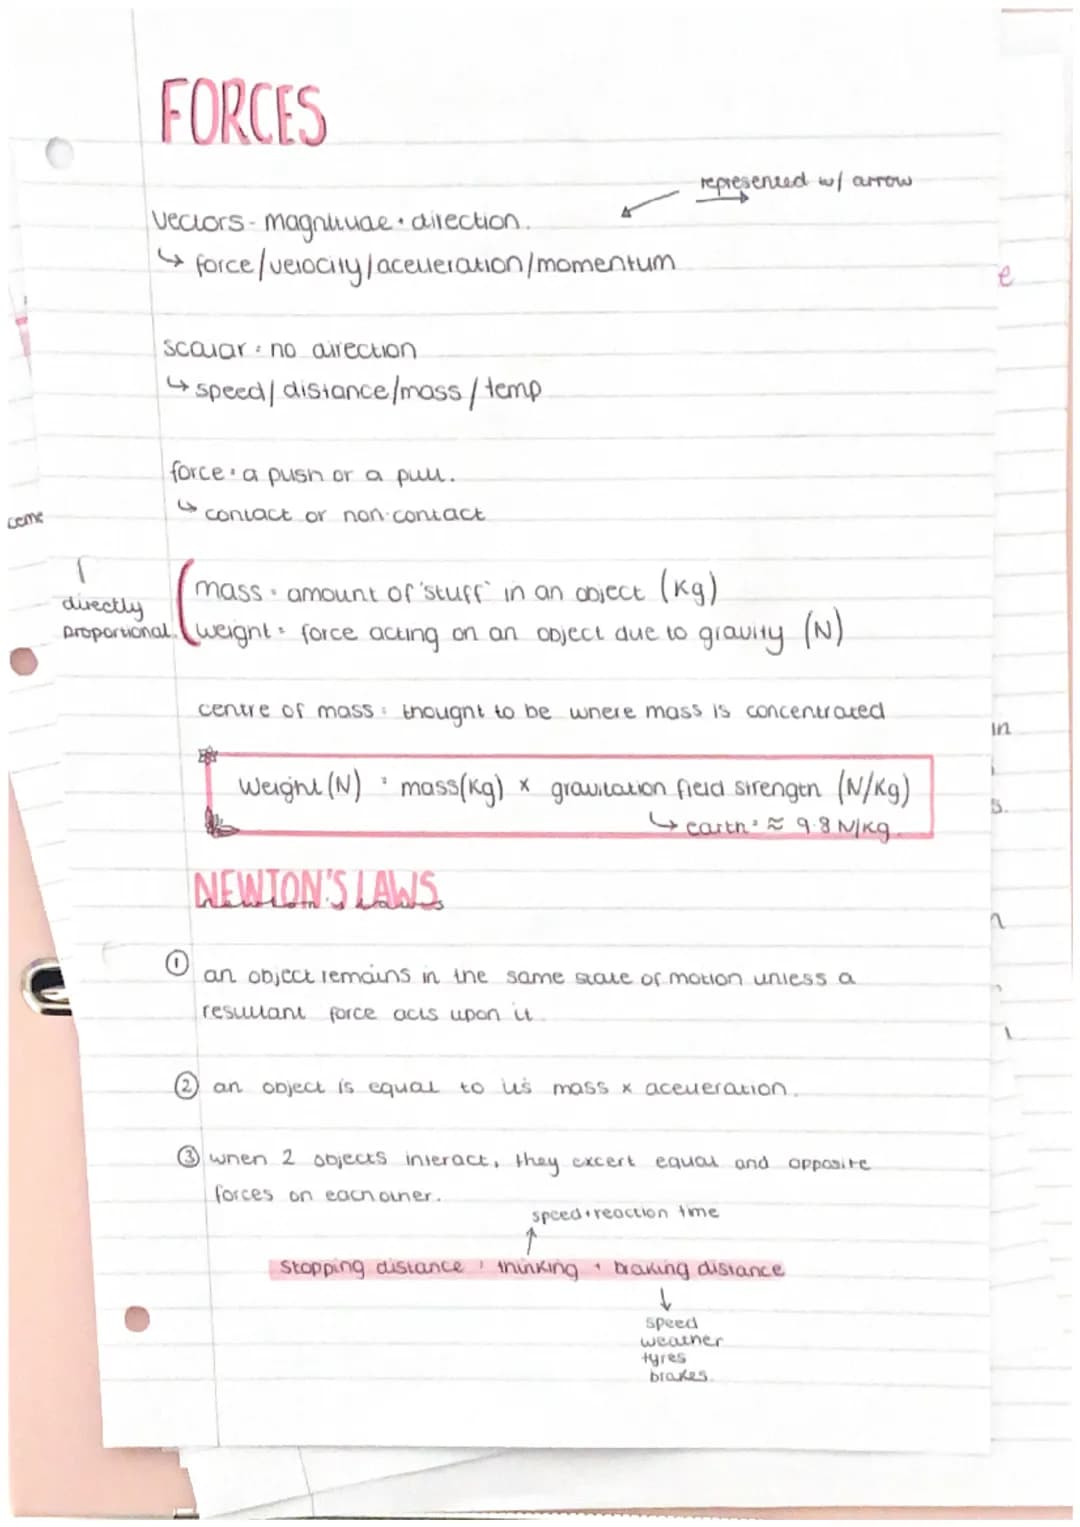 FORCES
represented w/ arrow
vectors - magnitude + direction.
↳ force/velocity/acelleration/momentum
scalar = no direction
↳ speed/distance/mass/temp
force = a push or a pull.
↳ contact or non-contact
ceme
directly
proportional.
mass = amount of 'stuff' in an object (kg)
weight = force acting on an object due to gravity (N)
centre of mass = thought to be where mass is concentrated
Weight (N) = mass(kg) × gravitation field strength (N/kg)
↳ earth = ≈ 9.8 N/kg.
NEWTON'S LAWS
① an object remains in the same state of motion unless a
resultant force acts upon it.
② an object is equal to its mass x acelleration.
③ when 2 objects interact, they excert equal and opposite
forces on each other.
speed + reaction time
Stopping distance = thinking + braking distance
speed
weather
tyres
brakes.
e
in
s.